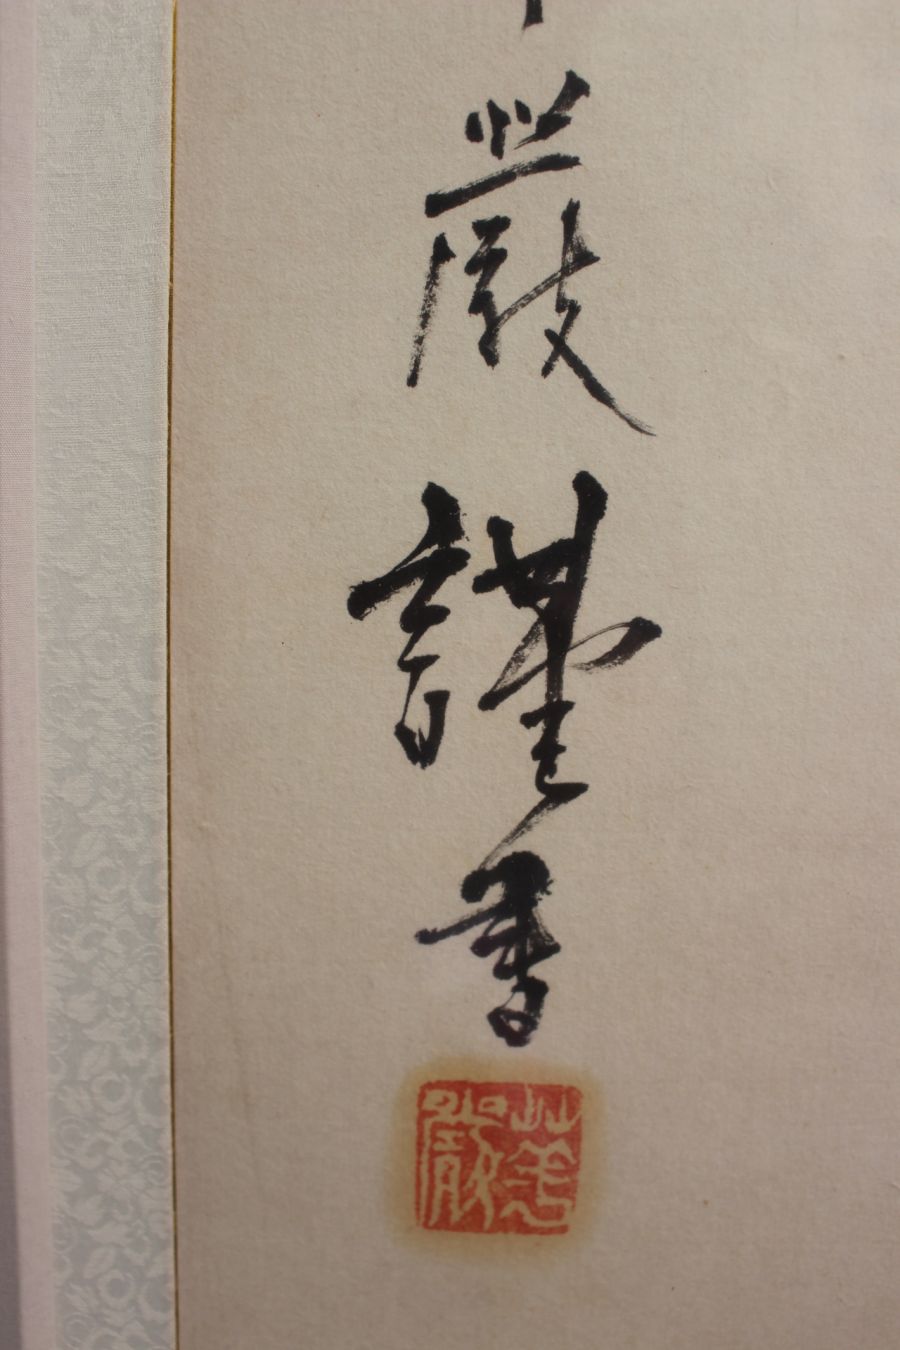 嚴謹書
華嚴